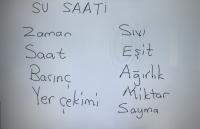 SU SAATİ
Zaman
Saat
Basınç
Yer çekimi
Sıvı
Eşit
Ağırlık
Miktar
Sayma